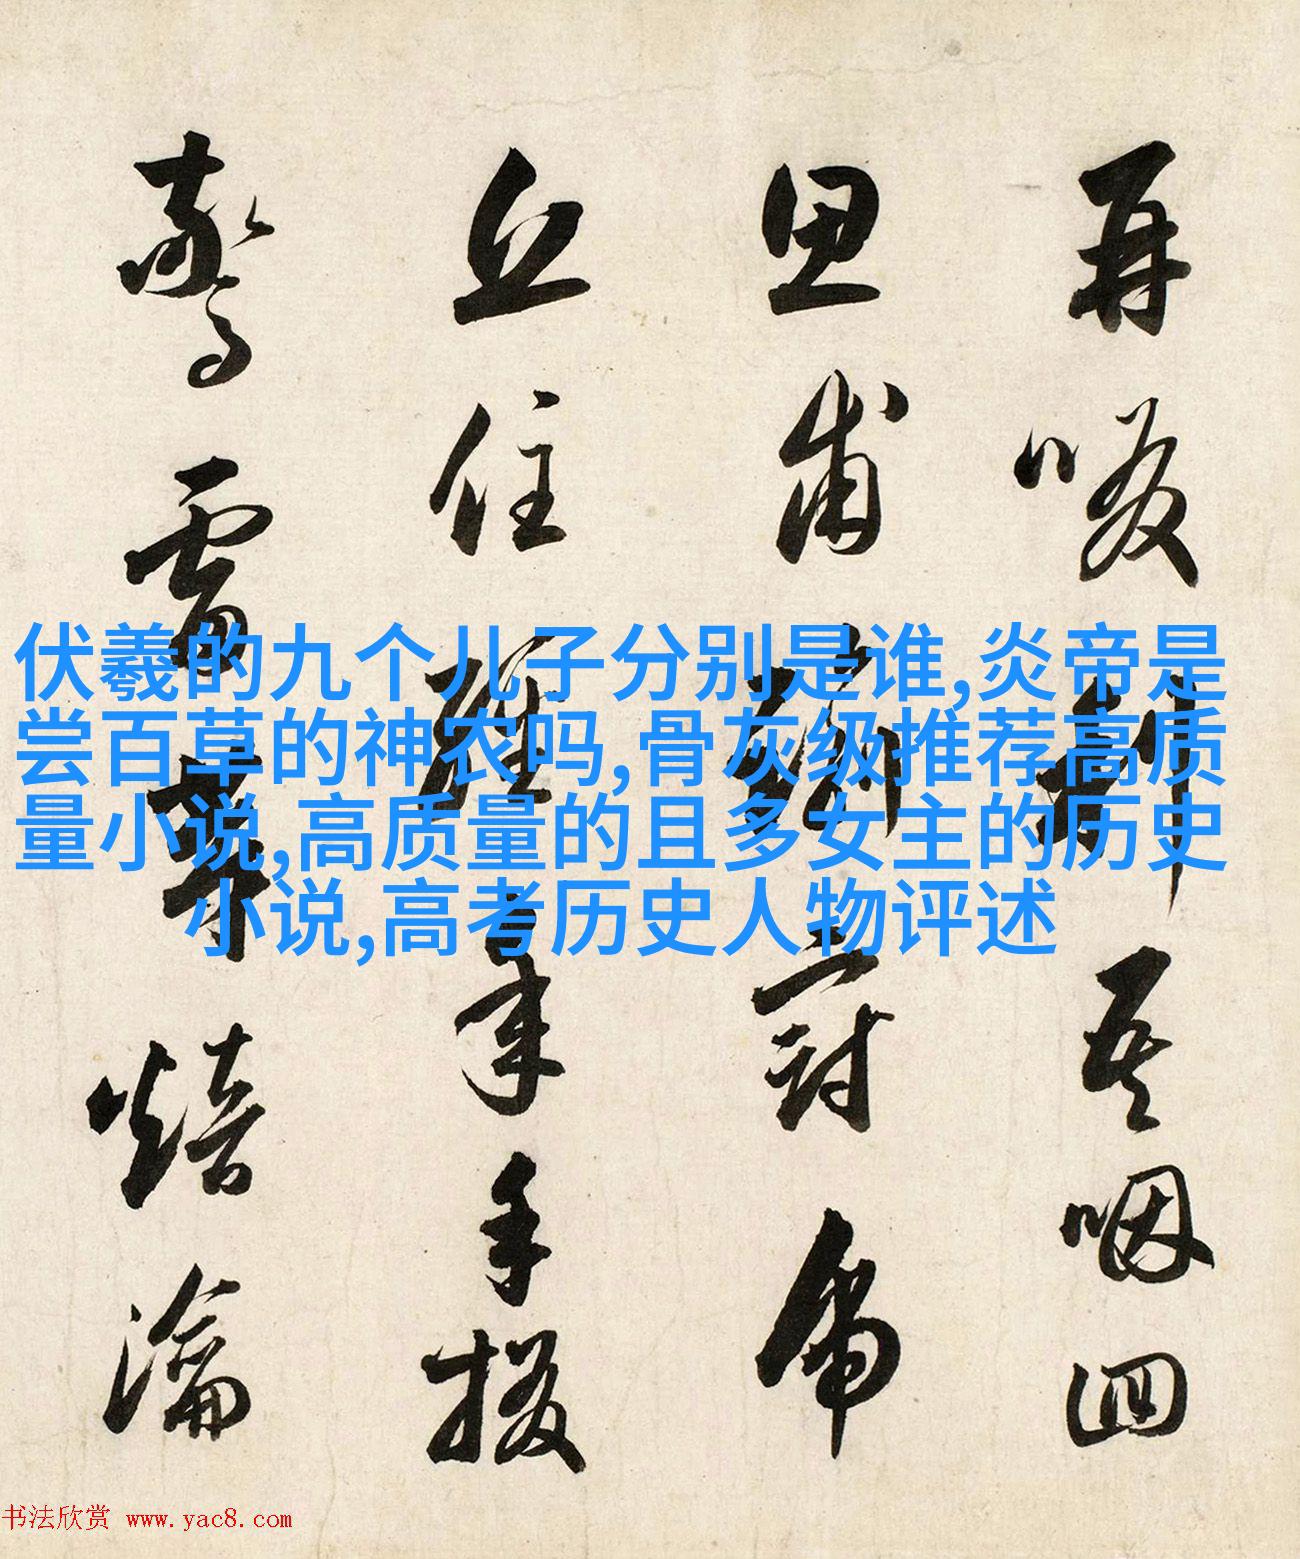 再啜 吾咽四
思甫
丘住 年手掇
驚雷 焙瀹
伏羲的九个儿子分别是谁,炎帝是
尝百草的神农吗,骨灰级推荐高质
量小说,高质量的且多女主的历史
小说,高考历史人物评述
书法欣赏 www.yac8.com